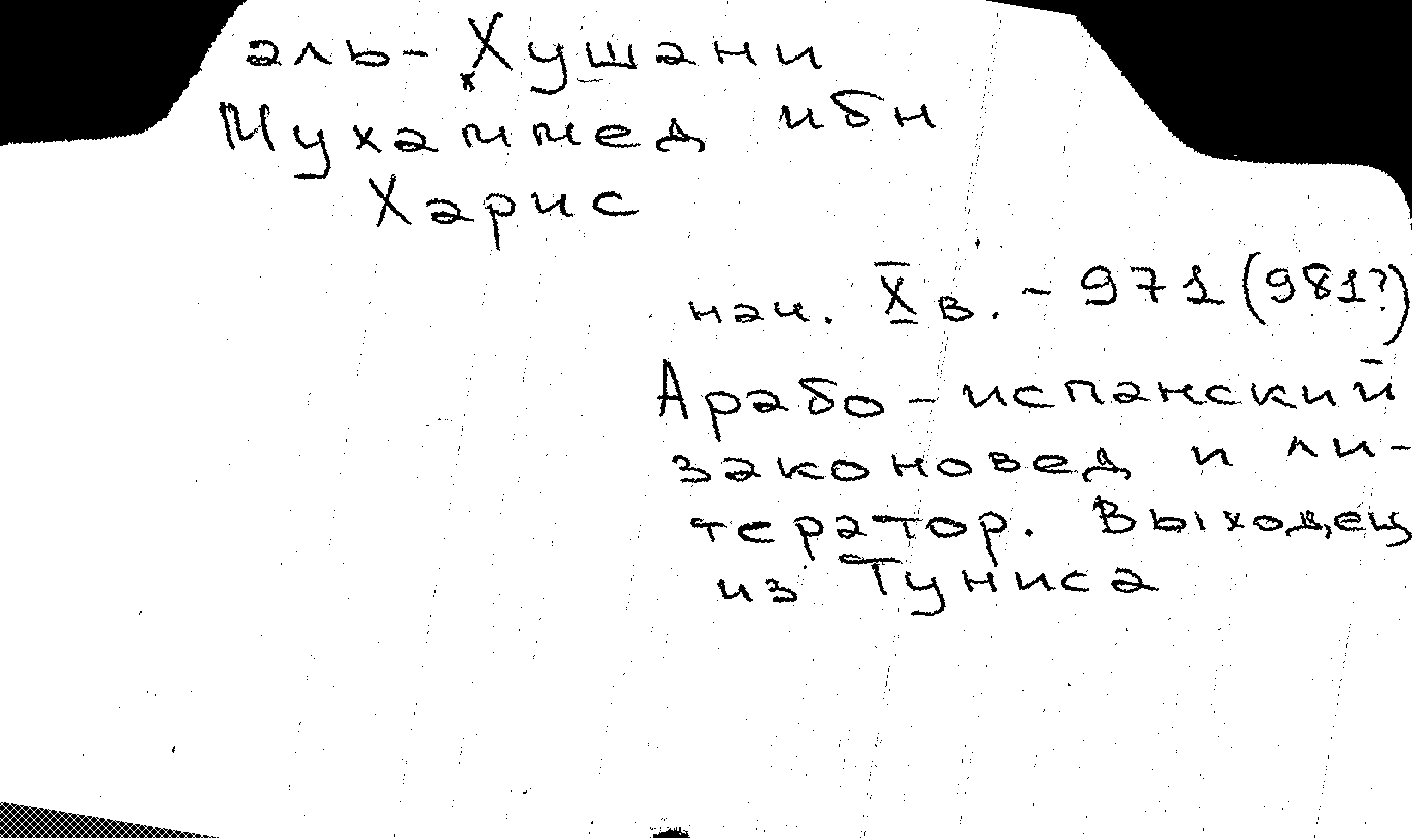 аль-Хушани
Мухаммед ибн
Харис
нач. X в. - 971 (981?)
Арабо-испанский
законовед и ли-
тератор. Выходец
из Туниса